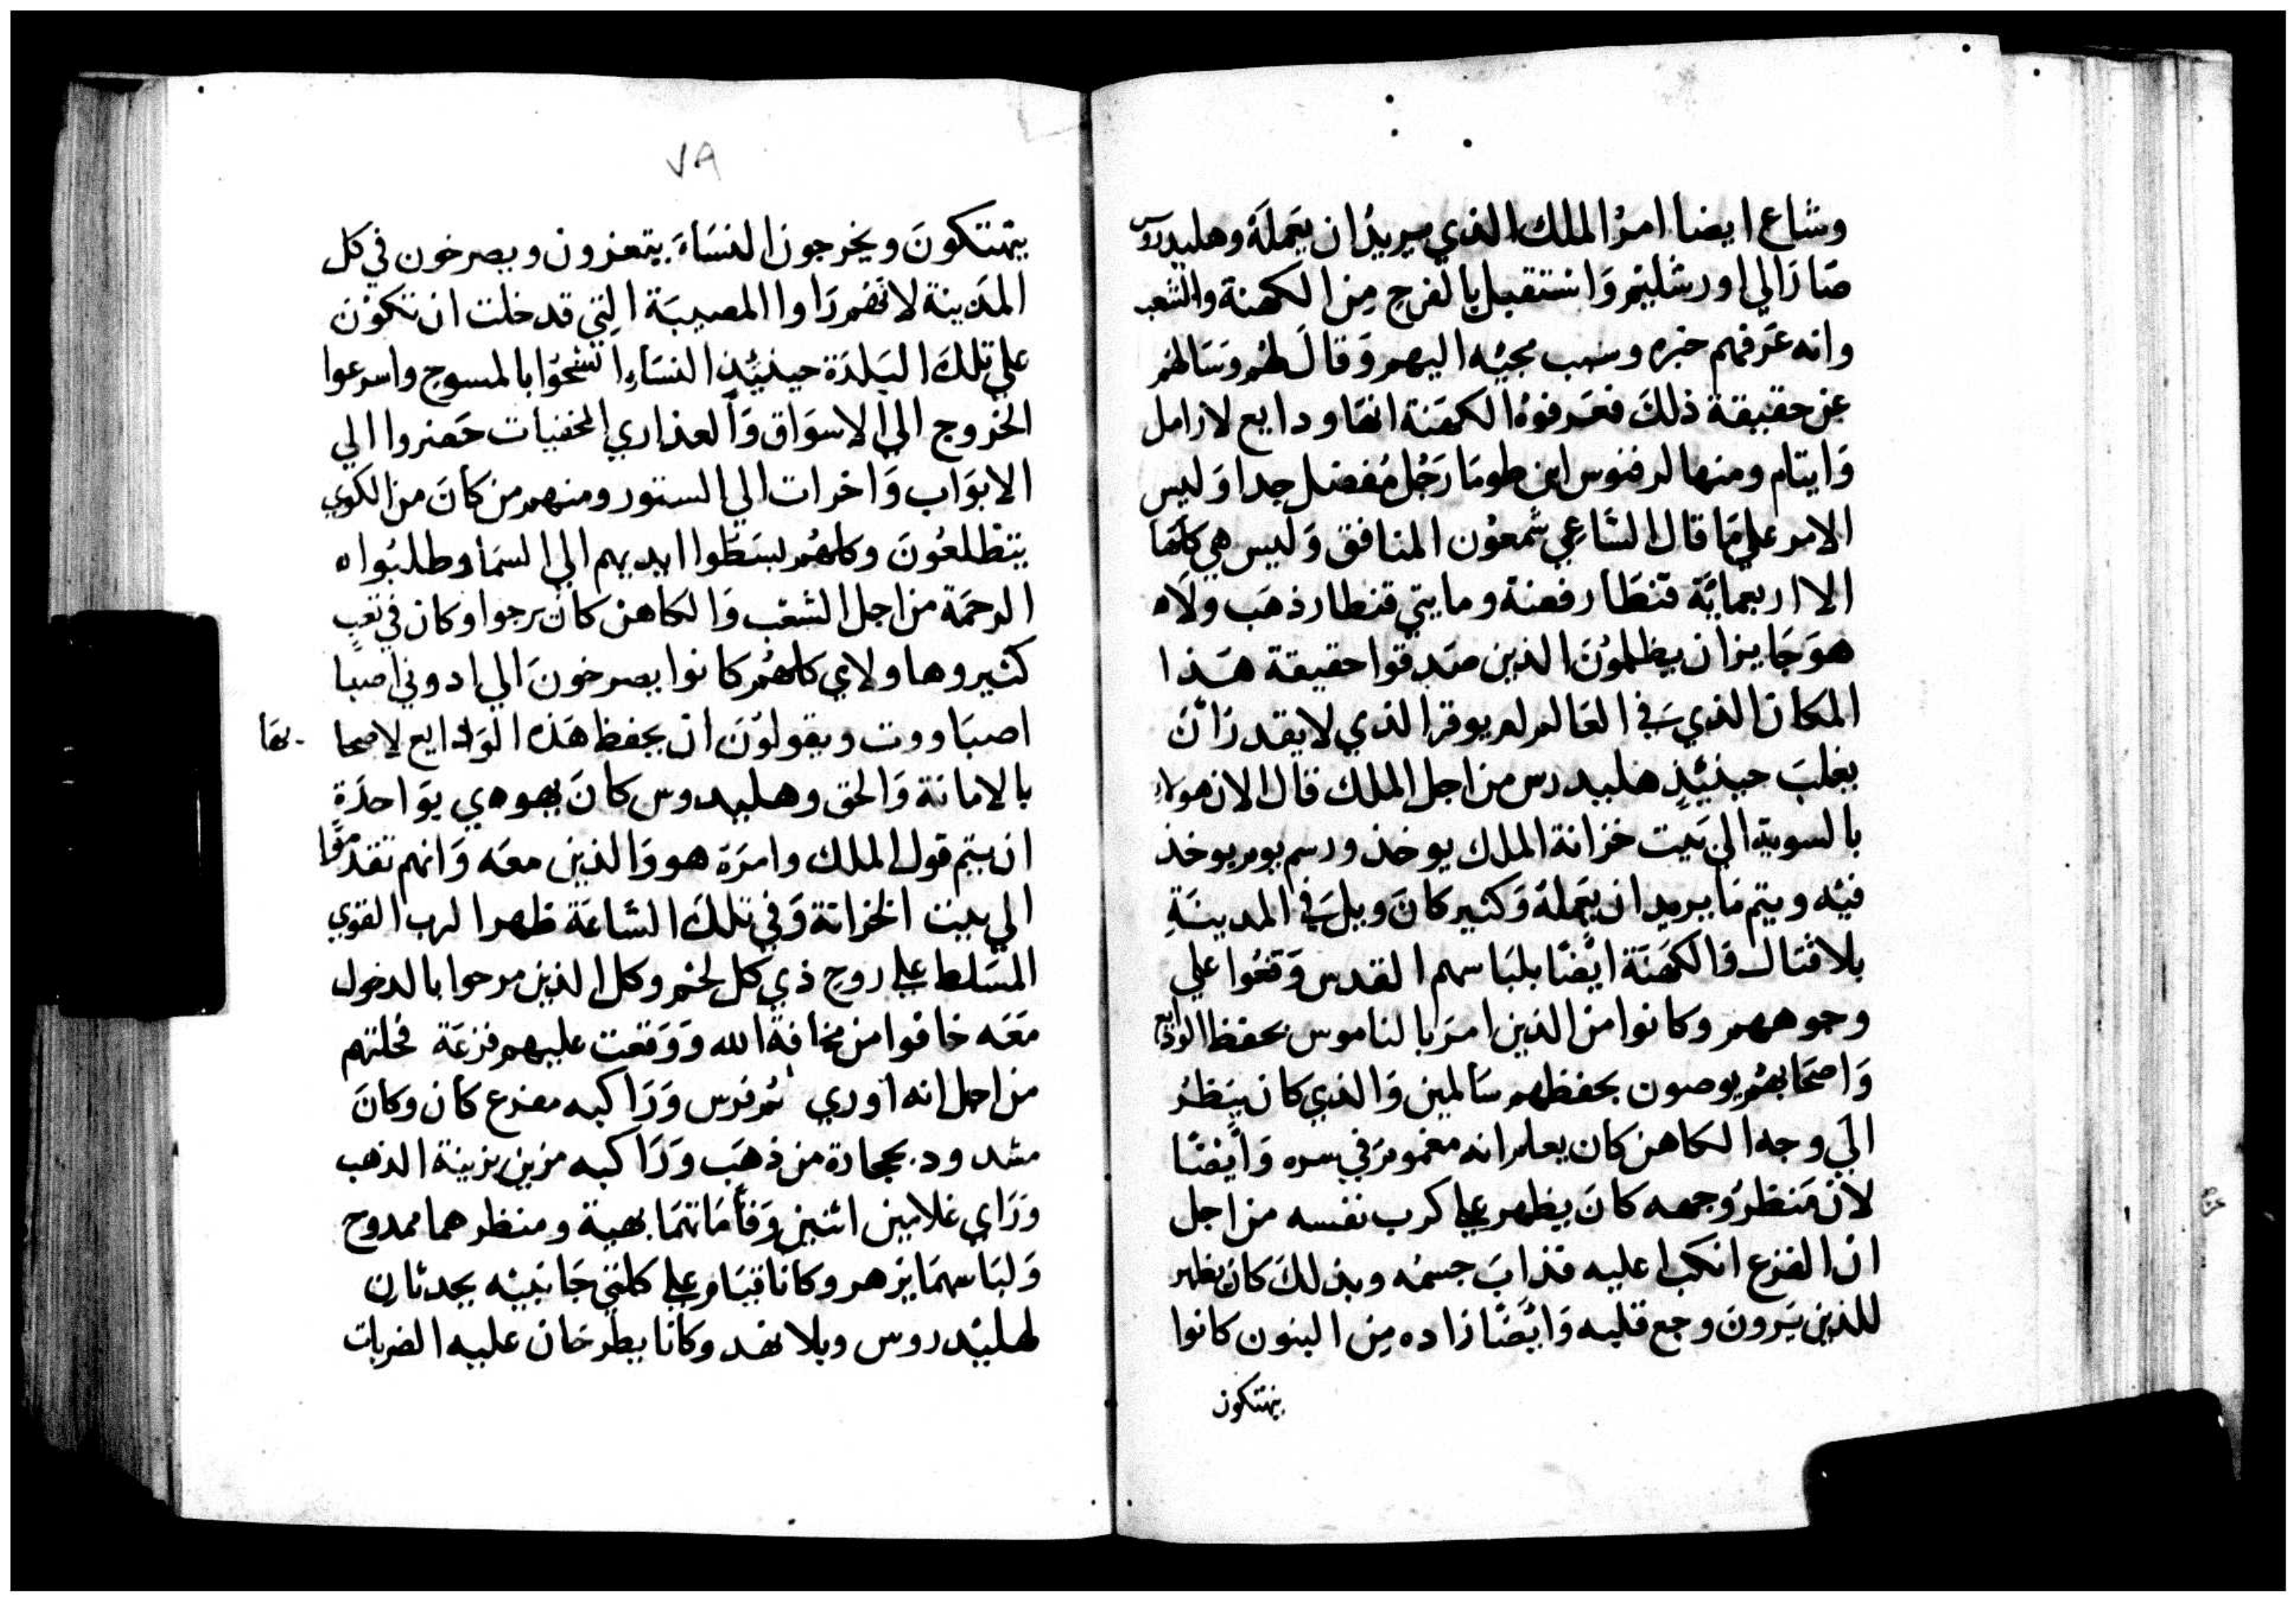 وشاع ايضا امرُ الملك الذي يريدُ ان يَعَملَهُ وهليدروس
صَارَ الي اورشليْم وَاستقبل بالفرح مِن الكهنة والشعب
وانه عَرفهم خبره وسبب مجيْه اليهم وَقالَ لهُم وسَالهُم
عن حقيقة ذلكَ فعَرفوهُ الكهَنة انهَا ودايع لارامل
وَايتام ومنها لرفنوس ابن طومَا رَجُل مُفضل جدا وَليس
الامر علي مَا قال الشاعي شمعوُن المنافق وَليس هي كلهَا
الا اربعمايَّة قنطَار فضة ومايتي قنطار ذهَب ولَاه
هوَ جَايز ان يظلموُنَ الذين صَدقوا حقيقة هَذا
المكان الذي في العَالم لم يوقر الذي لا يقدرَ أنَ
يغلبَ حينئِذٍ هليدرس من اجل الملك قال الان هولاي
بالسوية الي بَيت خزانة الملك يوخذ ورسم يوم يوخذ
فيْه ويتم مَا يريد ان يَعملهُ وَكثير كانَ ويل في المدينَةِ
بلا قتال وَالكهَنَة ايضًا بلبَاسهم القدس وَقعُوا علي
وجوههم وكانوا من الذين امَر بالناموس بحفظ الودايع
وَاصحَابهُم يوصون بحفظهم سَالمين وَالذي كان يَنظرُ
الي وجه الكاهن كان يعلم انه مغموم في سره وَايضًا
لان مَنظرُ وجهه كانَ يظهر علي كرب نفسه من اجل
ان الفزع انكب عليه فذابَ جسمُه وبذلكَ كان يظهر
للذين يَرونَ وجع قلبه وَايَضًا زاده مِن البنون كانوا
ينهتكون
٧٨
يتهتكونَ ويخرجون النسَاءَ يتعزون ويصرخون في كل
المَدينة لانهَم رَاوا المصيبَة التِي قد خلت ان تكوُنَ
علي تلكَ البَلدَة حينئِذٍ النسَاءِ اتشحُوا بالمسوح واسرعوا
الخروج الي الاسوَاق وَالعذاري المخفيات حَضروا الي
الابوَاب وَاخرات الي الستور ومنهم من كانَ من الكوي
يتطلعُونَ وكلهُم بسَطوا ايديهم الي السمَا وطلبُوا ه
الرحمَة من اجل الشعْب وَالكاهن كان يرجوا وكان في تعَبٍ
كثير وهاولاي كلهُم كانوا يصرخونَ الي ادوني اصبا
اصبَاووت ويقولوُنَ ان يحفظ هَذه الوَدايع لاصحا بهَا
بالامانة وَالحق وهليدوس كانَ يهوي يوَاحدَةٍ
ان يتم قول الملك وامرَه هو وَالذين معَه وَانهم تقدمُوا
الي بيت الخزانة وَفي تلكَ السَّاعَة ظهر الرب القوي
المسَلط علي روح ذي كل لحْم وكل الذين مرحوا بالدخول
مَعَه خافوا من مخافة الله وَوَقعت عليهم فزعَة فحلتهم
من اجل انه اوري لهُم فرس وَرَاكبه مفزع كان وكانَ
مشدود بحجارة من ذهَب وَرَاكبه مزين بزينة الذهب
وَرَاي غلامين اثنين وَقامَاتهمَا بهية ومنظرهما ممدوح
وَلبَاسهمَا يزهر وكانا قيَام علي كلتي جَانبيْه يحدثانِ
لهليْدروس وبلا نهد وكانَا يطرحَان عليه الضربات